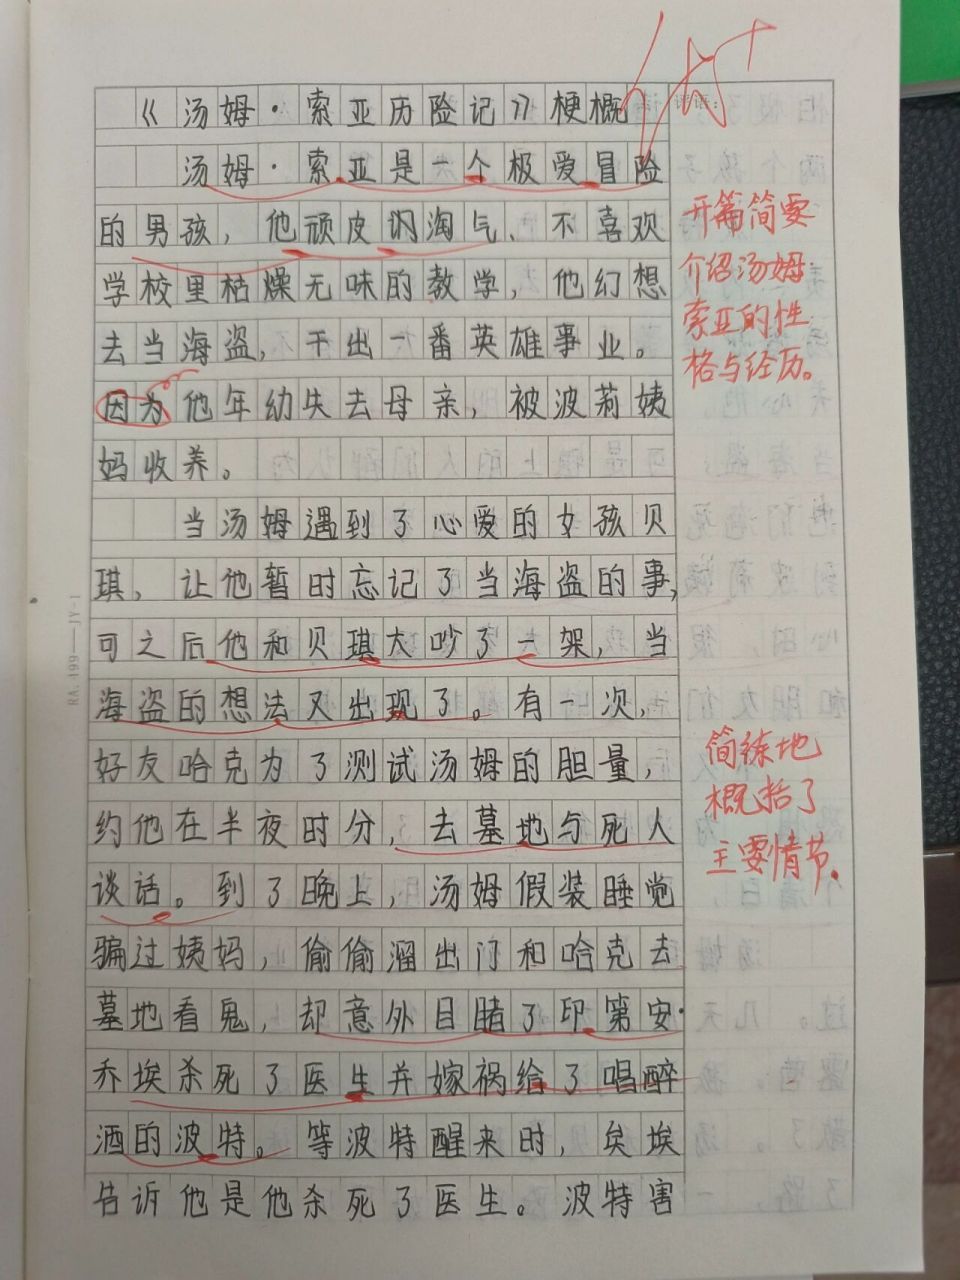 《汤姆·索亚历险记》梗概
A+
评语：
汤姆·索亚是一个极爱冒险
的男孩，他顽皮淘气、不喜欢
学校里枯燥无味的教学，他幻想
去当海盗，干出一番英雄事业。
因为他年幼失去母亲，被波莉姨
妈收养。
开篇简要
介绍汤姆·
索亚的性
格与经历。
当汤姆遇到了心爱的女孩贝
琪，让他暂时忘记了当海盗的事，
可之后他和贝琪大吵了一架，当
海盗的想法又出现了。有一次，
好友哈克为了测试汤姆的胆量，
约他在半夜时分，去墓地与死人
谈话。到了晚上，汤姆假装睡觉
骗过姨妈，偷偷溜出门和哈克去
墓地看鬼，却意外目睹了印第安·
乔埃杀死了医生并嫁祸给了唱醉
酒的波特。等波特醒来时，矣埃
告诉他是他杀死了医生。波特害
简练地
概括了
主要情节。
RA.199——JY-1